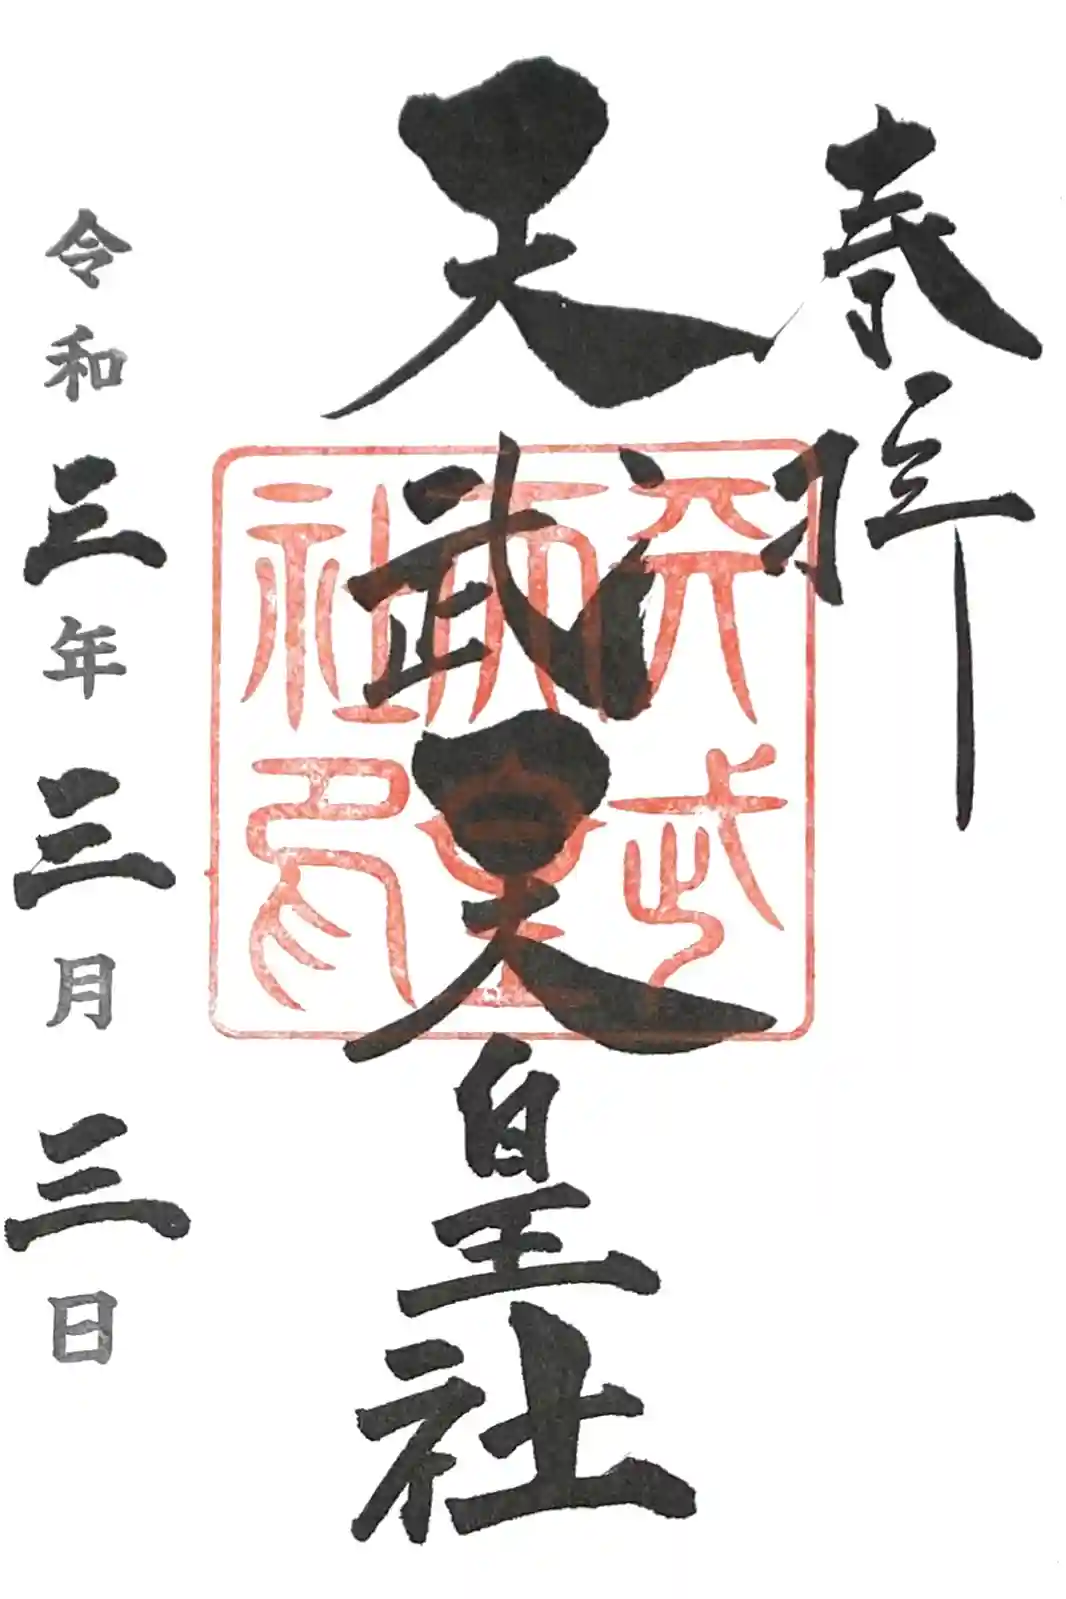 奉拝
天武天皇社
令和三年三月三日
天武
天皇
社印